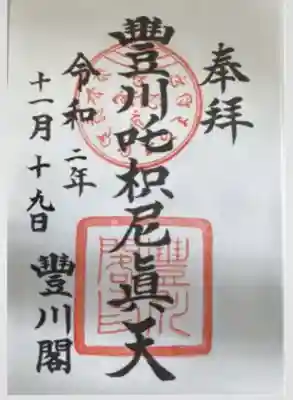 奉拝
豐川吒枳尼眞天
令和二年
十一月十九日
豐川閣
豐川閣印